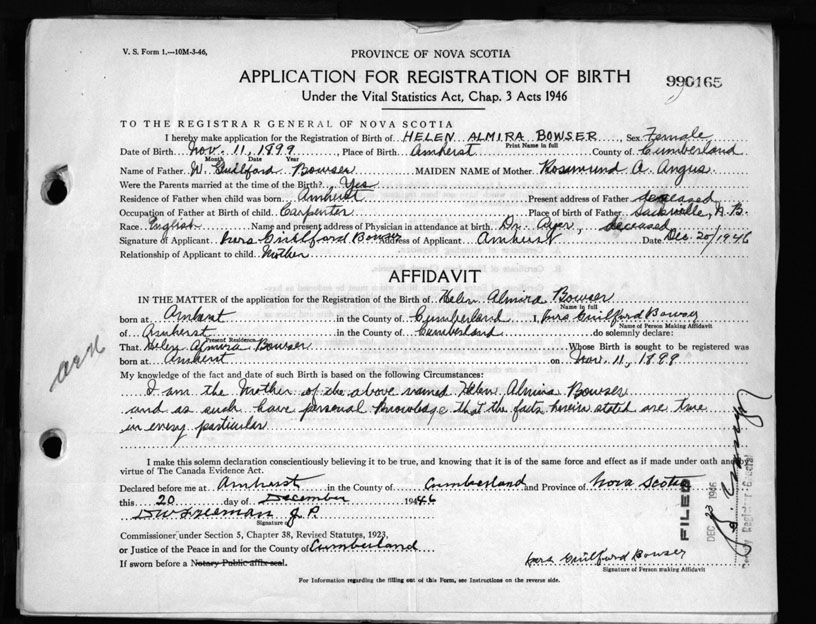 V. S. Form 1.—10M-3-46.
PROVINCE OF NOVA SCOTIA
APPLICATION FOR REGISTRATION OF BIRTH
990165
Under the Vital Statistics Act, Chap. 3 Acts 1946
TO THE REGISTRAR GENERAL OF NOVA SCOTIA
I hereby make application for the Registration of Birth of HELEN ALMIRA BOWSER, Sex Female
Print Name in full
Date of Birth Nov. 11, 1899, Place of Birth Amherst County of Cumberland
Month Date Year
Name of Father W. Guilford Bowser MAIDEN NAME of Mother Rosemund A. Angus
Were the Parents married at the time of the Birth? Yes
Residence of Father when child was born Amherst Present address of Father deceased
Occupation of Father at Birth of child Carpenter Place of birth of Father Sackville, N.B.
Race English Name and present address of Physician in attendance at birth Dr. Ayer, deceased
Signature of Applicant Mrs Guilford Bowser Address of Applicant Amherst Date Dec. 20/1946
Relationship of Applicant to child Mother
AFFIDAVIT
IN THE MATTER of the application for the Registration of the Birth of Helen Almira Bowser
Name in full
born at Amherst in the County of Cumberland I, Mrs Guilford Bowser
Name of Person Making Affidavit
of Amherst in the County of Cumberland do solemnly declare:
Present Residence
That Helen Almira Bowser Whose Birth is sought to be registered was
born at Amherst on Nov. 11, 1899
My knowledge of the fact and date of such Birth is based on the following Circumstances:
I am the Mother of the above named Helen Almira Bowser
and as such have personal knowledge that the facts herein stated are true
in every particular
I make this solemn declaration conscientiously believing it to be true, and knowing that it is of the same force and effect as if made under oath and by
virtue of The Canada Evidence Act.
Declared before me at Amherst in the County of Cumberland and Province of Nova Scotia
this 20 day of December 1946
Freeman J.P.
Signature
Commissioner under Section 5, Chapter 38, Revised Statutes, 1923,
or Justice of the Peace in and for the County of Cumberland
If sworn before a Notary Public affix seal.
Mrs Guilford Bowser
Signature of Person making Affidavit
For Information regarding the filling out of this Form, see Instructions on the reverse side.
FILED
DEC 23 1946